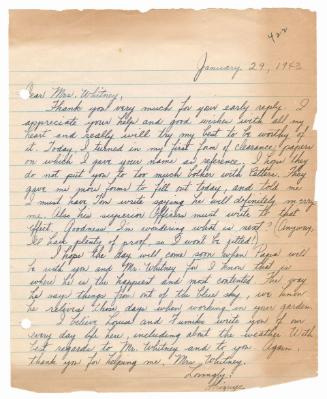 422
January 29, 1943
Dear Mrs. Whitney,
Thank you very much for your early reply. I
appreciate your help and good wishes with all my
heart and really will try my best to be worthy of
it. Today, I turned in my first form of clearance papers
on which I gave your name as reference. I hope they
do not put you to too much bother with letters. They
gave me more forms to fill out today, and told me
I must have Tom write saying he will definitely marry
me. Also his superior Officers must write to that
effect. Goodness I'm wondering what is next? (Anyway,
I'll have plenty of proof, so I won't be jilted!)
I hope the day will come soon when Papa will
be with you and Mr. Whitney for I know that is
where he is the happiest and most contented. The way
he says things from out of the blue sky, we know
he relives those days when working on your garden.
I believe Louise and Fumiko write you of our
every day life here, including about the weather. With
best regards to Mr. Whitney and to you. Again,
thank you for helping me, Mrs. Whitney.
Lovingly,